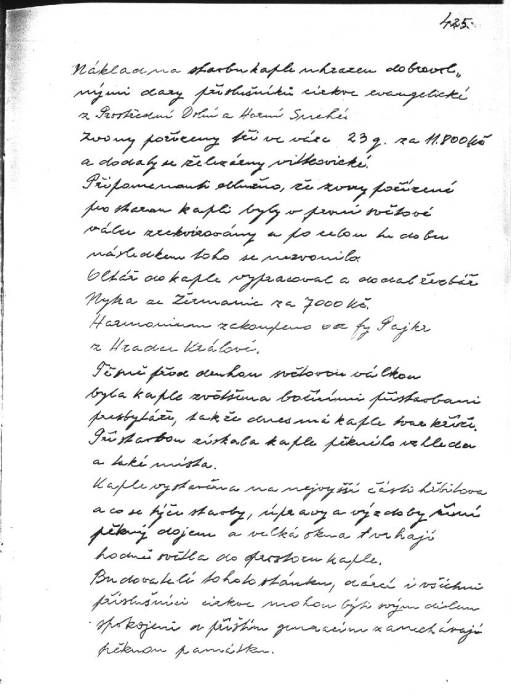 425.
Náklad na stavbu kaple uhrazen dobrovol„
nými dary příslušníků církve evangelické
z Prostřední Dolní a Horní Suché.
Zvony pořízeny tři ve váze 23 q. za 11.800 Kč
a dodaly se železárny vítkovické.
Připomenouti slušno, že zvony pořízené
pro starou kapli byly v první světové
válce zrekvírovány a po celou tu dobu
následkem toho se nezvonilo.
Oltář do kaple vypracoval a dodal řezbář
Nyka ze Žermanic za 7000 Kč.
Harmonium zakoupeno od fy Pajkr
z Hradce Králové.
Těsně před druhou světovou válkou
byla kaple zvětšena bočními přístavbami
presbytáře, takže dnes má kaple tvar kříže.
Přístavbou získala kaple pěkného vzhledu
a také místa.
Kaple vystavěna na nejvyšší části hřbitova
a co se týče stavby, úpravy a výzdoby činí
pěkný dojem a velká okna vrhají
hodně světla do prostoru kaple.
Budovatelé tohoto stánku, dárci i všichni
příslušníci církve mohou býti svým dílem
spokojeni a příštím generacím zanechávají
pěknou památku.